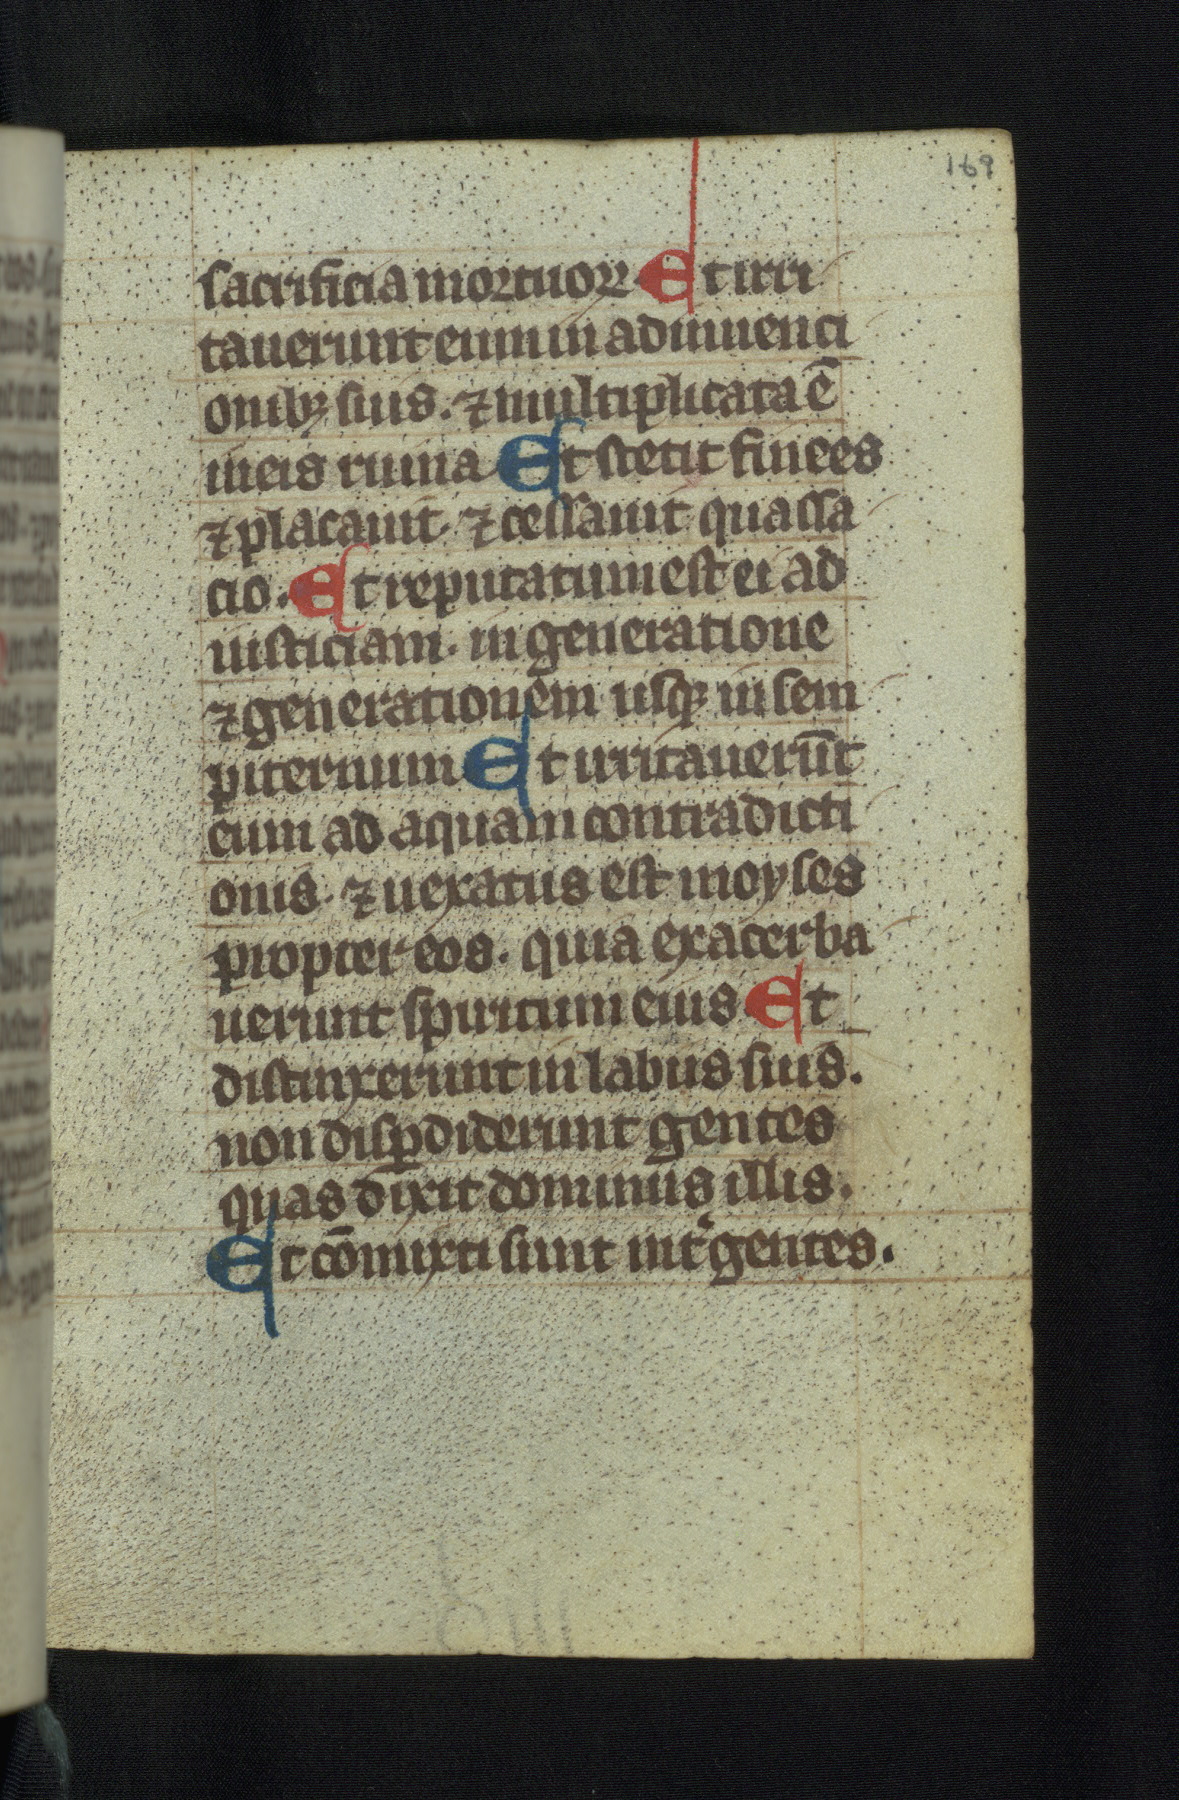 169
sacrificia mortuoꝝ. Et irri
tauerunt eum in adinuenci
onibꝫ suis. ⁊ multiplicata ē
in eis ruina Et stetit finees
⁊ placauit. ⁊ cessauit quassa
cio. Et reputatum est ei ad
iusticiam. in generatione
⁊ generationem usqꝫ in sem
piternum Et irritauerūt
eum ad aquam contradicti
onis. ⁊ uexatus est moyses
propter eos. quia exacerba
uerunt spiritum eius Et
distinxerunt in labiis suis.
non disꝑdiderunt gentes
quas dixit dominus illis.
Et cōmixti sunt int᷑ gentes.